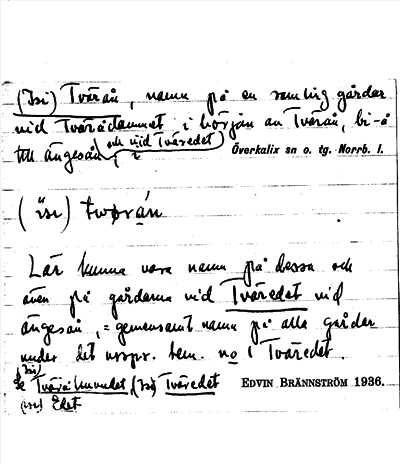 (Isi) Tvärån, namn på en samling gårdar
vid Tvärådammet i början av Tvärån, bi-å
till ängesån (och vid Tväredet), i
Överkalix sn o. tg. Norrb. l.
(isi) twǫrán
Lär kunna vara namn på dessa och
även på gårdarna vid Tväredet vid
ängesån, = gemensamt namn på alla gårdar
under det urspr. hem. no 1 Tväredet.
Se Tväråhuvudet, (Isi) Tväredet
EDVIN BRÄNNSTRÖM 1936.
(isi) Edet